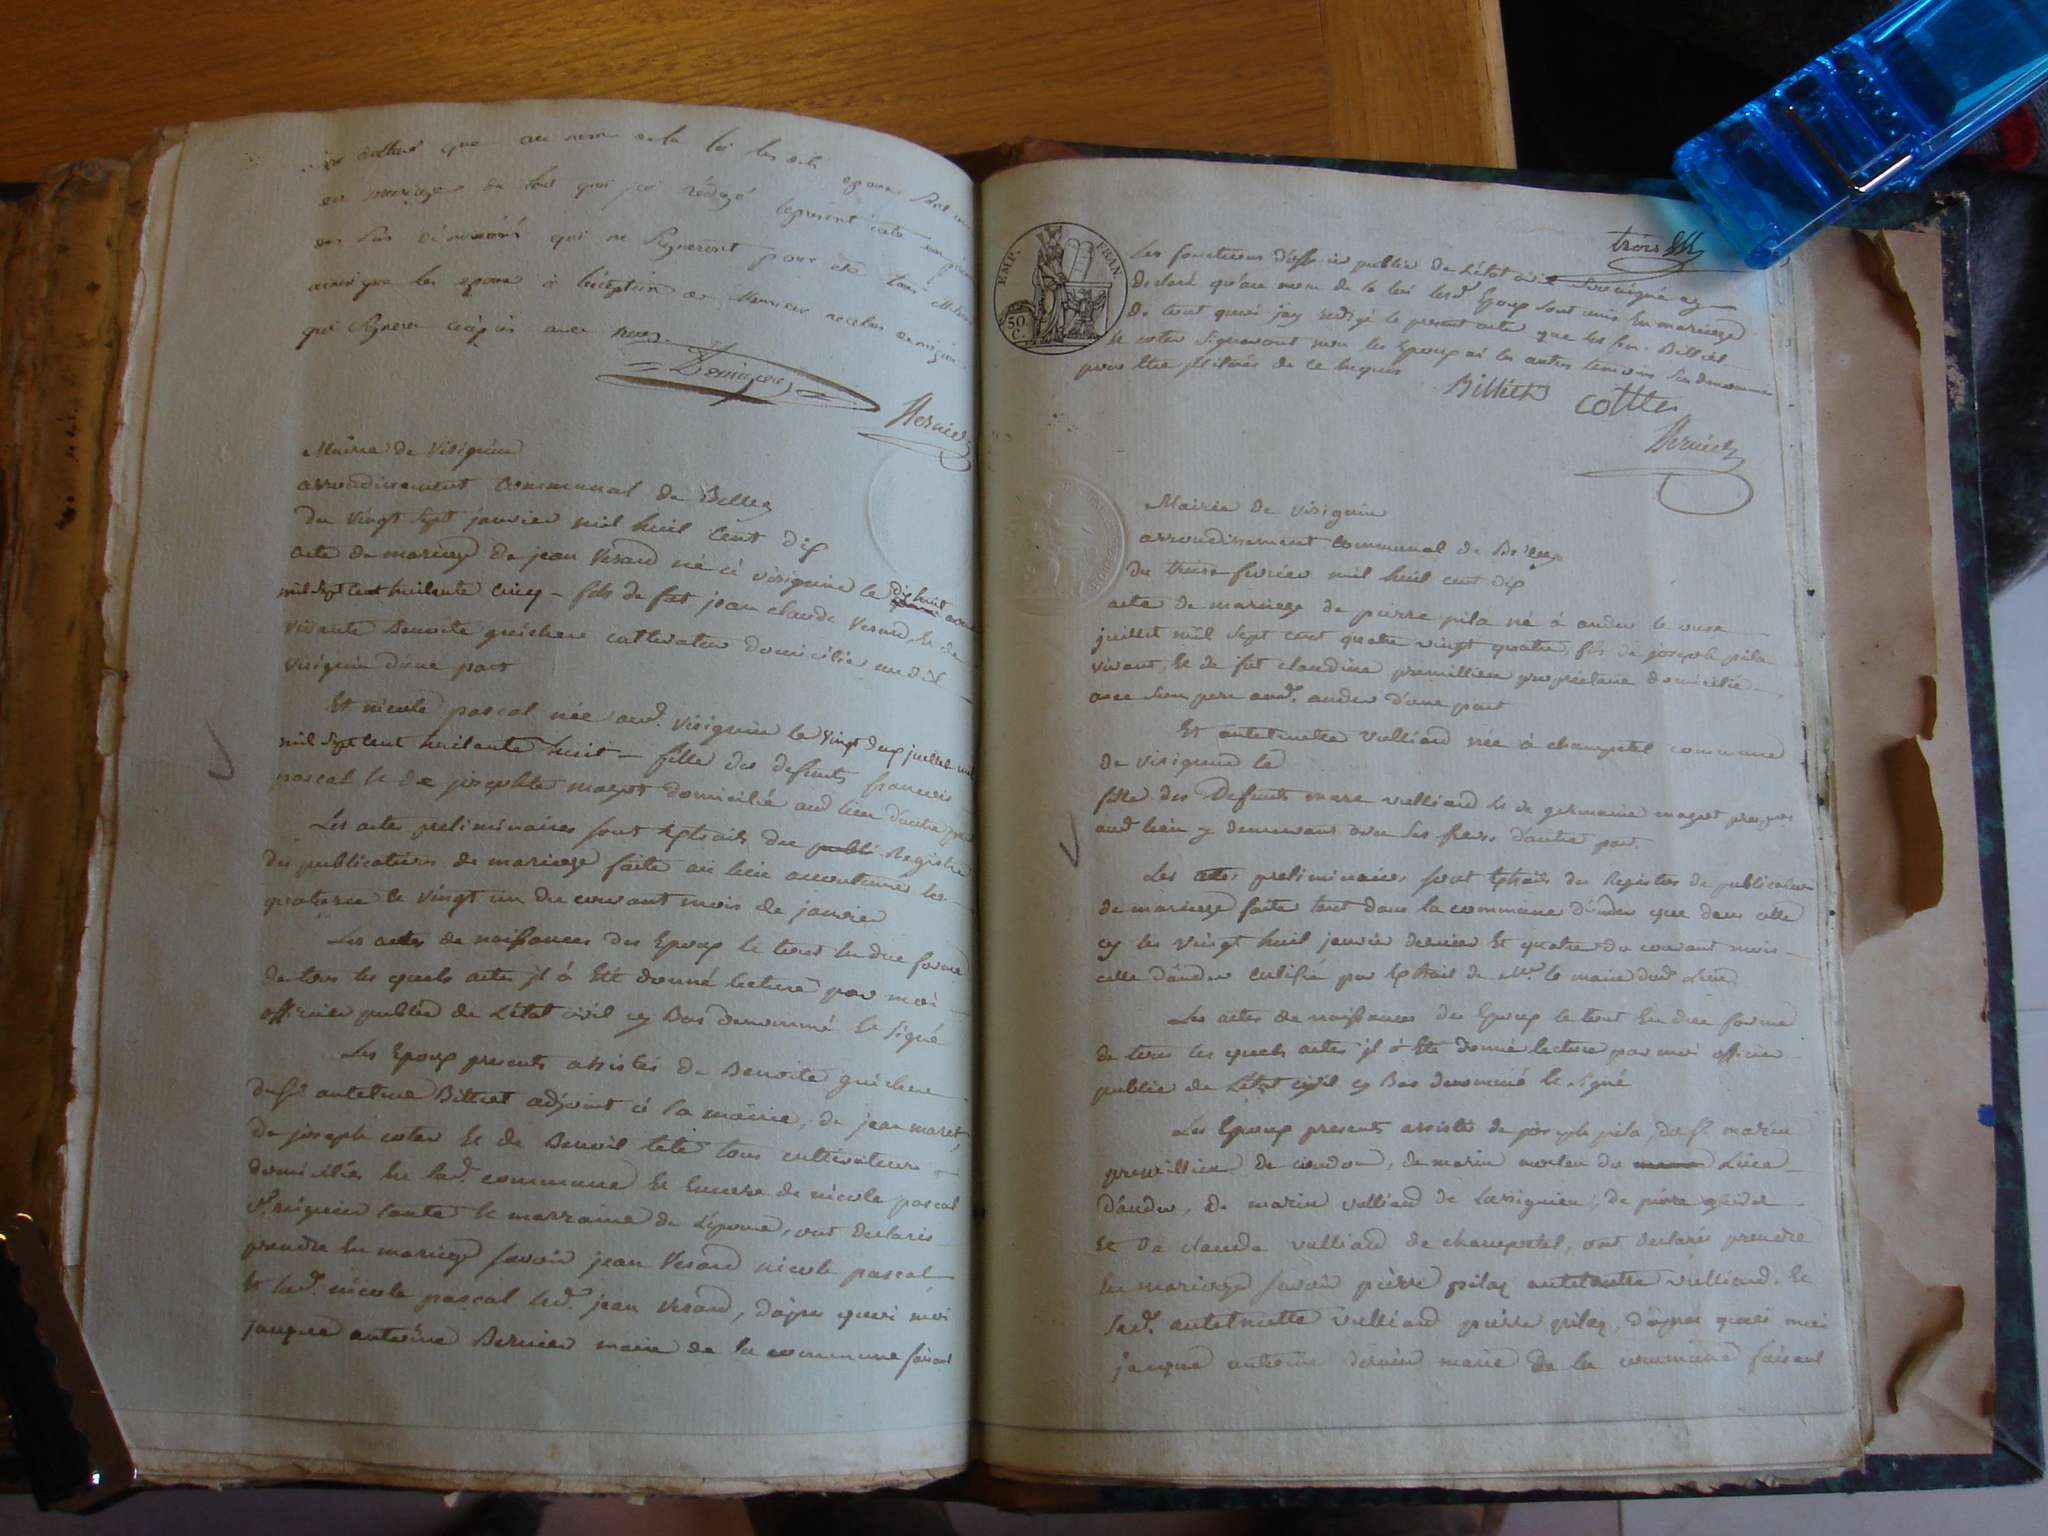 que au nom de la loi les dits epoux sont
en mariage de tout quoi j'ai rédigé le present acte
qui ne signeront pour etre tous illiteres
ainsi que les epoux à l'éxception de Monsieur
qui signera ci après avec nous
Bernier
Mairie de Virignin
arrondissement communal de Belley
du vingt sept janvier mil huit cent dix
acte de mariage de jean Verard né à virignin le dix huit
mil sept cent huitante cinq - fils de fut jean claude Verard, et de
vivante Benoite guichere cultivateur domicilié audit
virignin d'une part
Et nicole pascal née aud. virignin le vingt deux juillet
mil sept cent huitante huit - fille des defunts francois
pascal et de josephte magot domicilié aud lieu d'autre part
Les actes preliminaires sont Extraits du publi Registre
des publications de mariage faite au lieu accoutumé les
quatorze et vingt un du courant mois de janvier
Les actes de naissances des Epoux le tout En due forme
de tous les quels actes jl à Eté donné lecture par moi
officier public de L'état civil cy Bas denommé et signé
Les Epoux presents assistés de Benoite guichere
du Sr. antelme Billiet adjoint à la mairie, de jean maret,
de joseph coter et de Benoit teté tous cultivateurs
domiciliés En lad. commune Et Encore de nicole pascal
tante et marraine de L'epouse, ont declarés
prendre En mariage savoir jean Verard nicole pascal
Et lad. nicole pascal led. jean Verard, d'apres quoi moi
jacques antoine Bernier maire de la commune faisant
trois
EMP. FRAN.
50 C.
Les fonctions d'officier public de L'état civil soussigné ay
declaré qu'au nom de la loi lesd. Epoux sont unis En mariage
De tout quoi jay redigé le present acte que les sr. Billiet
Et coter signeront non les Epoux ni les autres temoins susdenommés
pour Etre jllitérés de ce Requis
Billiet
cotter
Bernier
Mairie de virignin
arrondissement communal de Belley
du treize fevrier mil huit cent dix
acte de mariage de pierre pila né à ander le onze
juillet mil sept cent quatre vingt quatre, fils de joseph pila
vivant, Et de fut claudine premillieu proprietaire domicilié
avec son pere aud. ander d'une part
Et antelmette vulliard née à champtel commune
de virignin le
fille des Defunts marc vulliard et de germaine magot
aud. lieu y demeurant avec ses freres d'autre part.
Les actes preliminaires sont Extraits du Registre de publications
de mariage faite tant dans la commune d'ander que dans celle
cy les vingt huit janvier dernier Et quatre du courant mois
celle d'ander certifié par Extrait de Mr. le maire dud. Lieu
Les actes de naissances des Epoux le tout En due forme
de tous les quels actes jl à Eté donné lecture par moi officier
public de L'état civil cy Bas denommé et signé
Les Epoux presents assistés de joseph pila, du Sr. marin
premillieu de condon, de marin
d'ander, de marin vulliard de Lassignieu, de pierre
Et de claude vulliard de champtel, ont declarés prendre
En mariage savoir pierre pilaz antelmette vulliard. Et
lad. antelmette vulliard pierre pilaz, d'apres quoi moi
jacques antoine Bernier maire de la commune faisant